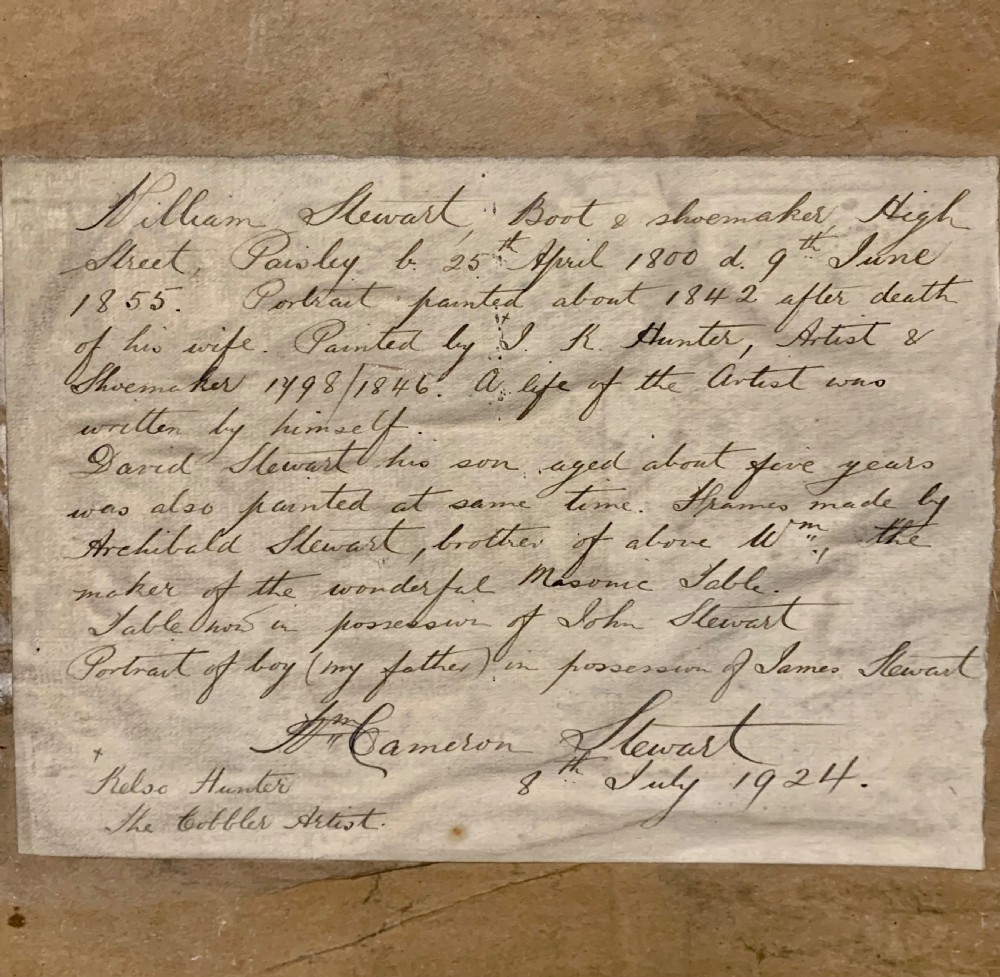 William Stewart, Boot & shoemaker, High
Street, Paisley b. 25th April 1800 d. 9th June
1855. Portrait painted about 1842 after death
of his wife. Painted by + J. K. Hunter, Artist &
Shoemaker 1798/1846. A life of the Artist was
written by himself.
David Stewart his son aged about five years
was also painted at same time. Frames made by
Archibald Stewart, brother of above Wm, the
maker of the wonderful Masonic Table.
Table now in possession of John Stewart
Portrait of boy (my father) in possession of James Stewart
Wm Cameron Stewart
8th July 1924.
+
Kelso Hunter
The Cobbler Artist.